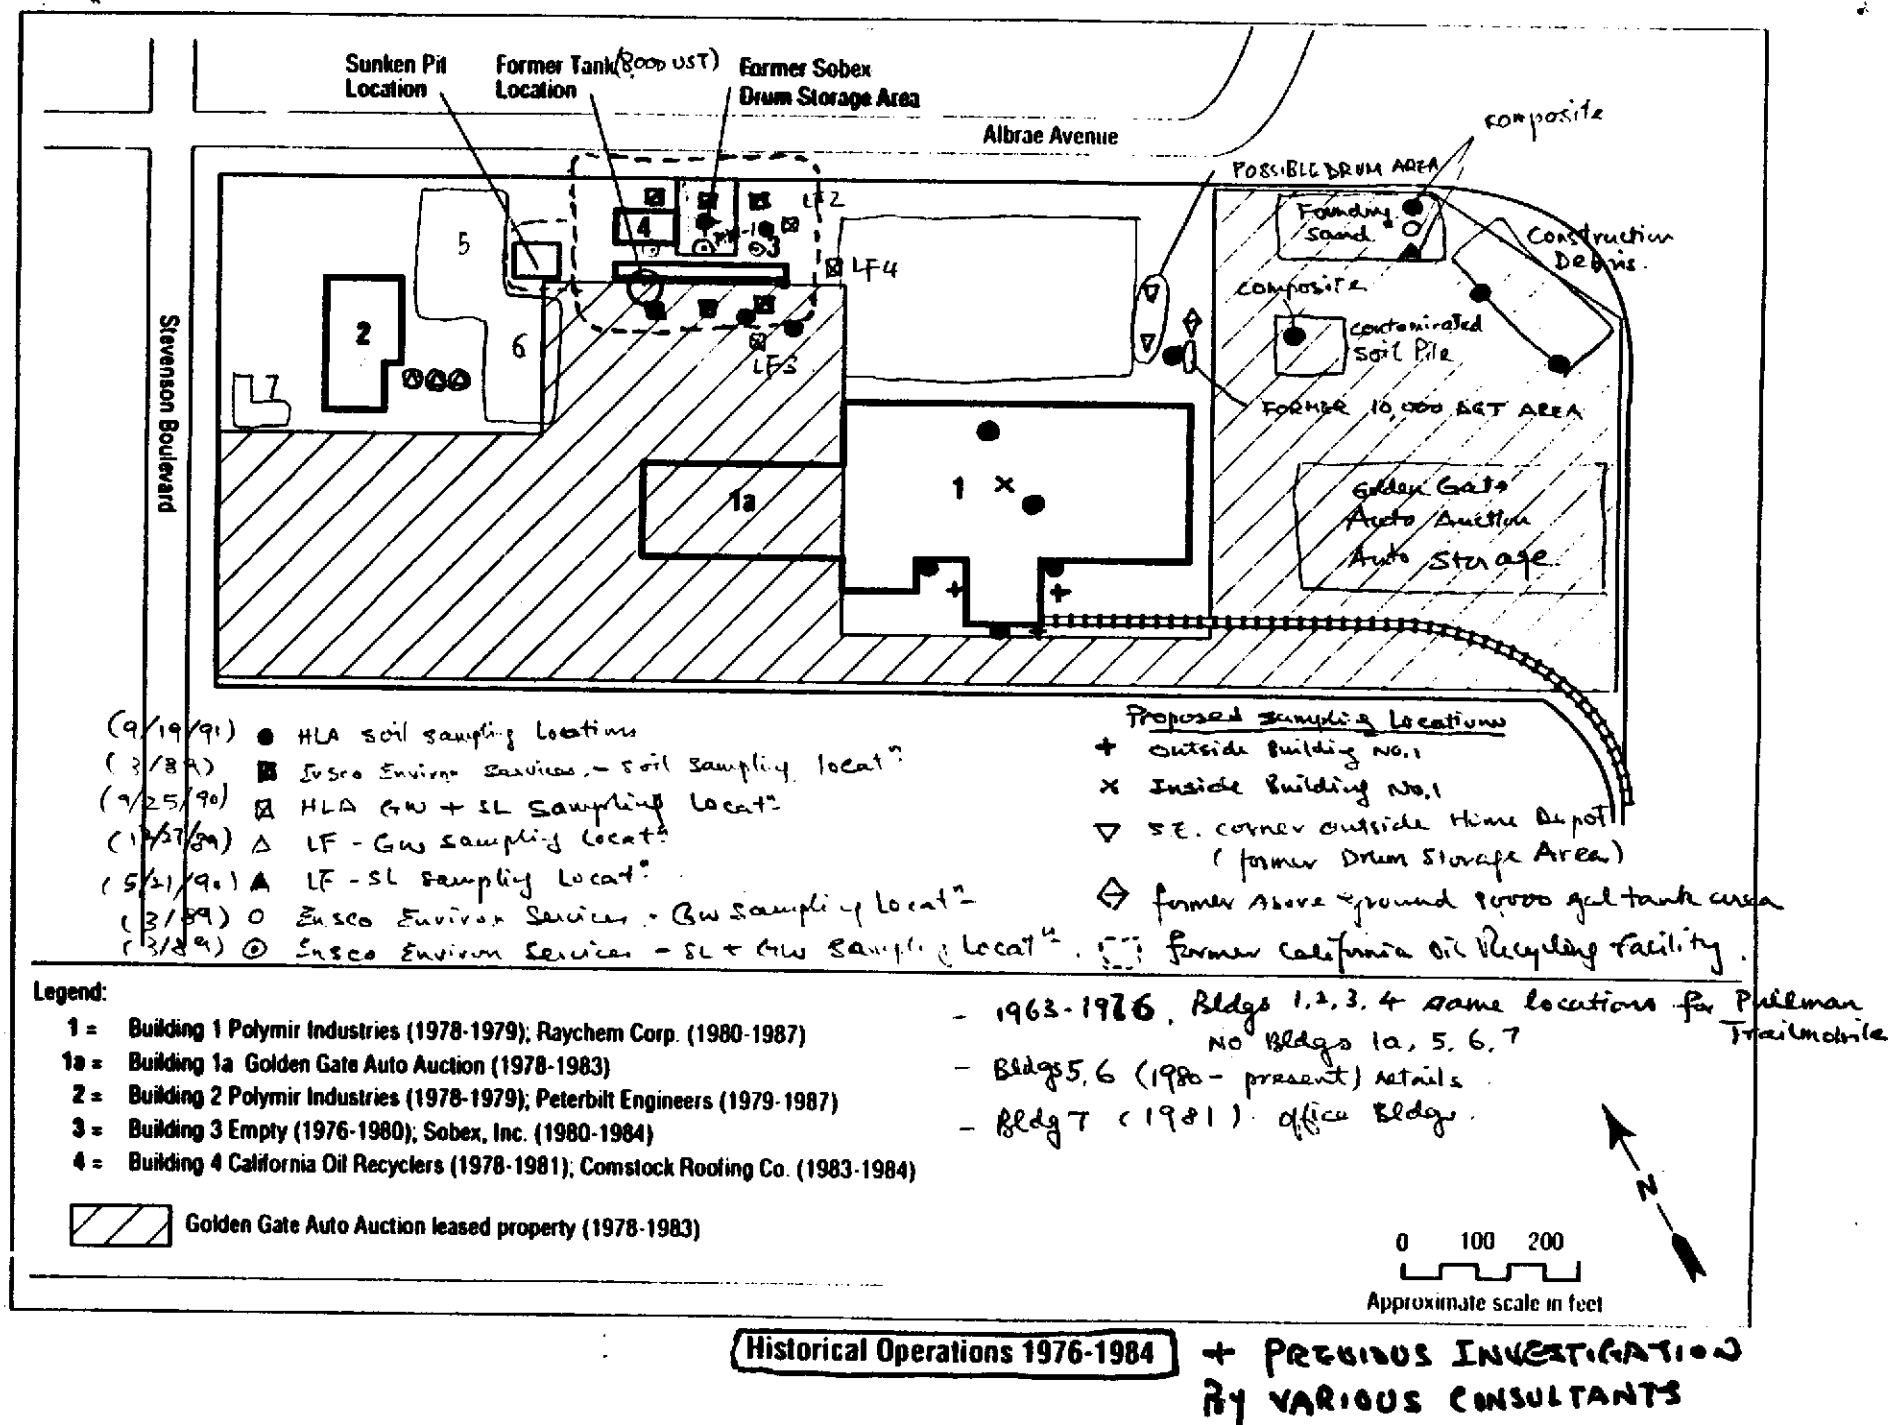 Sunken Pit
Location
Former Tank (8000 UST)
Location
Former Sobex
Drum Storage Area
Albrae Avenue
composite
POSSIBLE DRUM AREA
Foundry
Sand
Construction
Debris
composite
contaminated
Soil Pile
FORMER 10,000 AGT AREA
Golden Gate
Auto Auction
Auto Storage
Stevenson Boulevard
LF2
LF4
LF3
1
1a
2
3
4
5
6
7
(9/19/91) HLA soil sampling locations
(3/89) Ensco Environ Services - Soil Sampling locatⁿ
(9/25/90) HLA GW + SL Sampling Locatⁿ
(12/27/89) LF - GW sampling Locatⁿ
(5/21/90) LF - SL Sampling Locatⁿ
(3/89) Ensco Environ Services - GW Sampling Locatⁿ
(3/89) Ensco Environ Services - SL + GW Sampling Locatⁿ
Proposed Sampling Locations
+ Outside Building No.1
x Inside Building No.1
S.E. corner outside Home Depot
(former Drum Storage Area)
former Above ground 10,000 gal tank area
former California Oil Recycling Facility.
Legend:
1 = Building 1 Polymir Industries (1978-1979); Raychem Corp. (1980-1987)
1a = Building 1a Golden Gate Auto Auction (1978-1983)
2 = Building 2 Polymir Industries (1978-1979); Peterbilt Engineers (1979-1987)
3 = Building 3 Empty (1976-1980); Sobex, Inc. (1980-1984)
4 = Building 4 California Oil Recyclers (1978-1981); Comstock Roofing Co. (1983-1984)
Golden Gate Auto Auction leased property (1978-1983)
- 1963-1976, Bldgs 1,2,3,4 same locations for Pullman
Trailmobile
NO Bldgs 1a, 5, 6, 7
- Bldgs 5,6 (1980 - present) retails
- Bldg 7 (1981) office Bldgs.
N
0 100 200
Approximate scale in feet
Historical Operations 1976-1984 + PREVIOUS INVESTIGATION
By VARIOUS CONSULTANTS